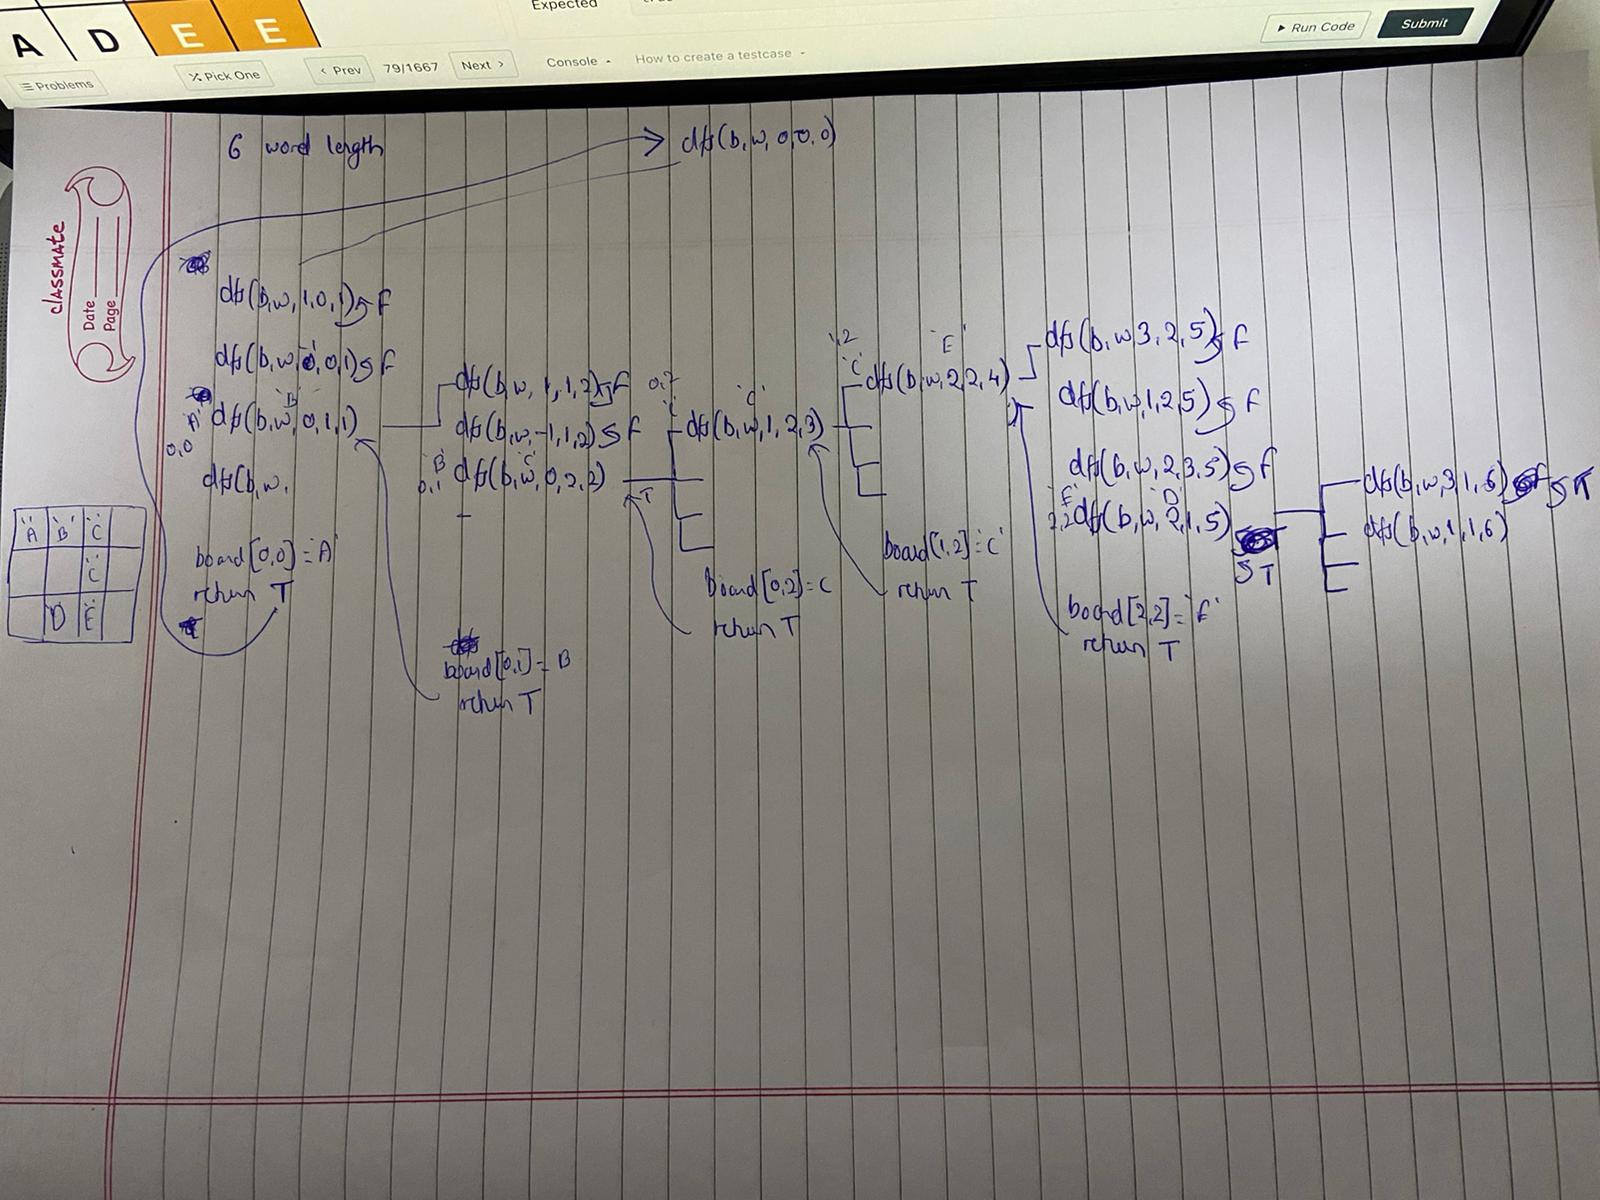 Expected
A D E E
Problems
Pick One
Prev 79/1667 Next
Console
How to create a testcase
Run Code
Submit
classmate
Date
Page
6 word length
dfs(b,w,0,0,0)
dfs(b,w,1,0,1) F
dfs(b,w,0,0,1) F
'B'
'A' dfs(b,w,0,1,1)
0,0
dfs(b,w,
board[0,0]='A'
return T
'A' 'B' 'C'
'C'
'D' 'E'
dfs(b,w,1,1,2) F
dfs(b,w,-1,1,2) F
'B' 'C'
0,1 dfs(b,w,0,2,2)
T
board[0,1]=B
return T
0,2
'C' 'C'
dfs(b,w,1,2,3)
Board[0,2]=C
return T
1,2
'C' 'E'
dfs(b,w,2,2,4)
board[1,2]='C'
return T
dfs(b,w,3,2,5) F
dfs(b,w,1,2,5) F
dfs(b,w,2,3,5) F
'E' 'D'
2,2 dfs(b,w,2,1,5)
T
board[2,2]='E'
return T
dfs(b,w,3,1,6) T
dfs(b,w,1,1,6)